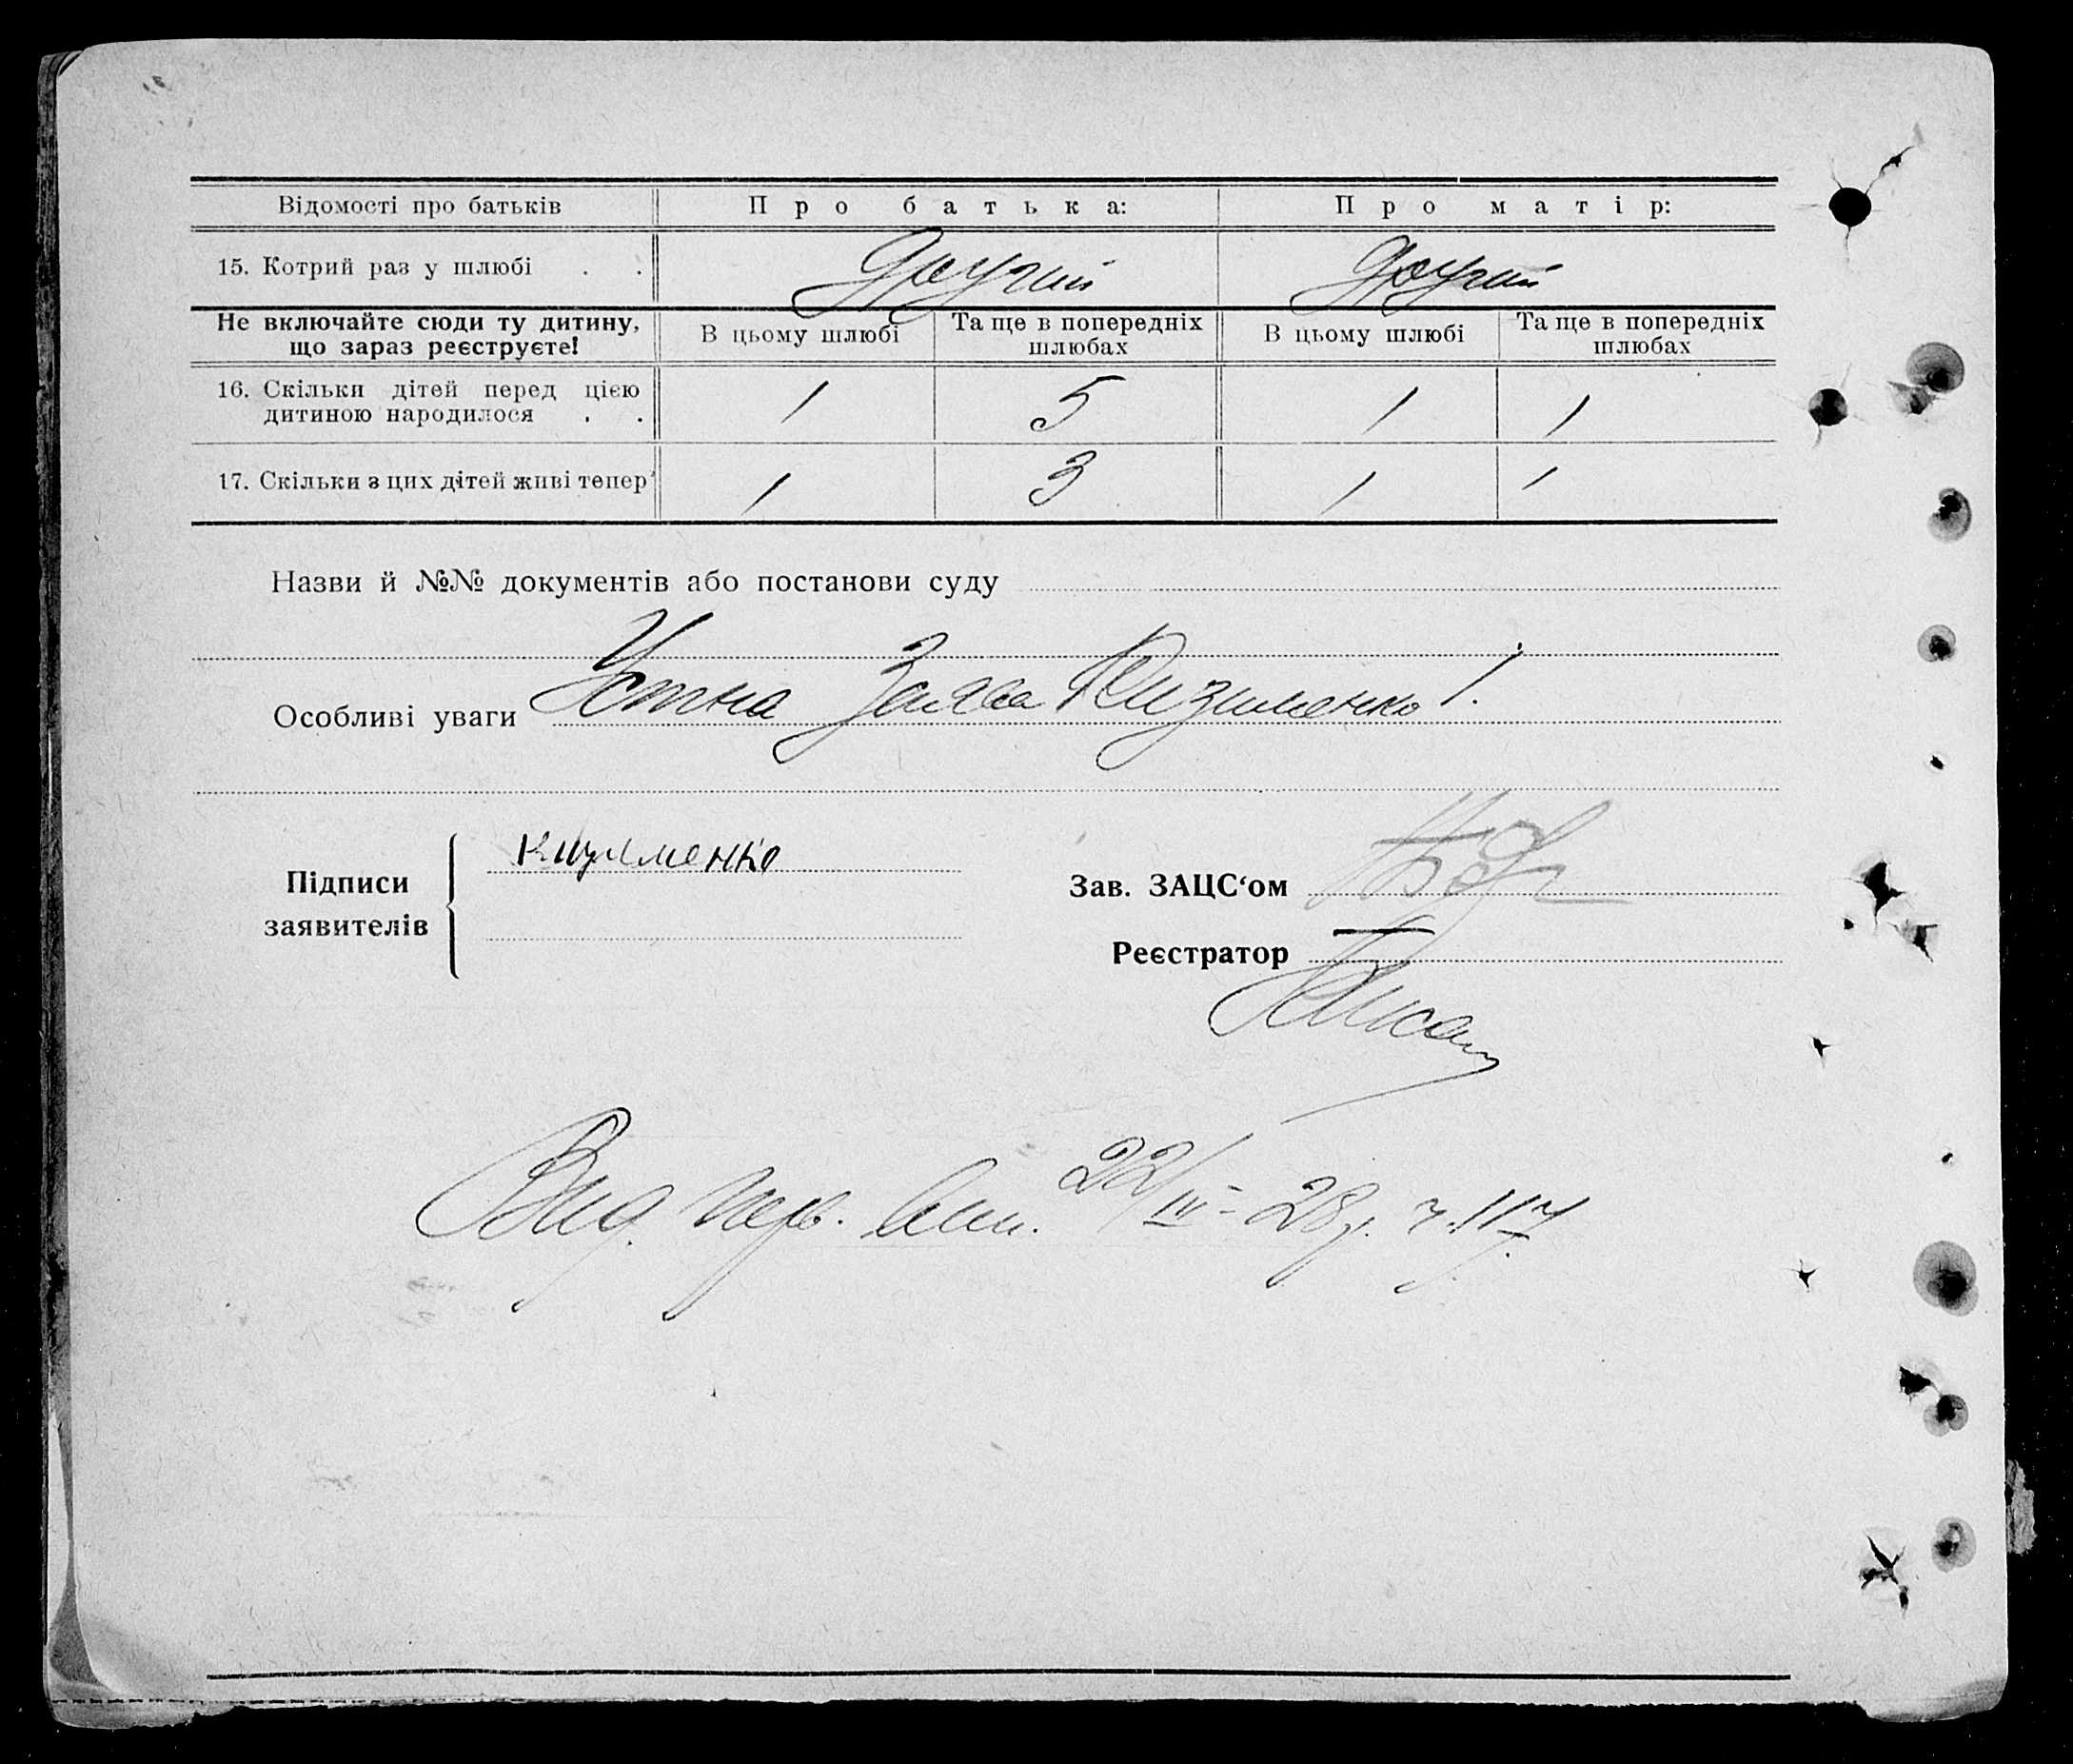 Відомості про батьків Про батька: Про матір:
15. Котрий раз у шлюбі . . Другий Другий
Не включайте сюди ту дитину, що зараз реєструєте! В цьому шлюбі Та ще в попередніх шлюбах В цьому шлюбі Та ще в попередніх шлюбах
16. Скільки дітей перед цією дитиною народилося . . 1 5 1 1
17. Скільки з цих дітей живі тепер 1 3 1 1
Назви й №№ документів або постанови суду
Особливі уваги Устна Заява Кизименко І.
Підписи заявителів Кизименко
Зав. ЗАЦС‘ом
Реєстратор
Вид. перв. вип. 22/III - 28 р. ч. 117